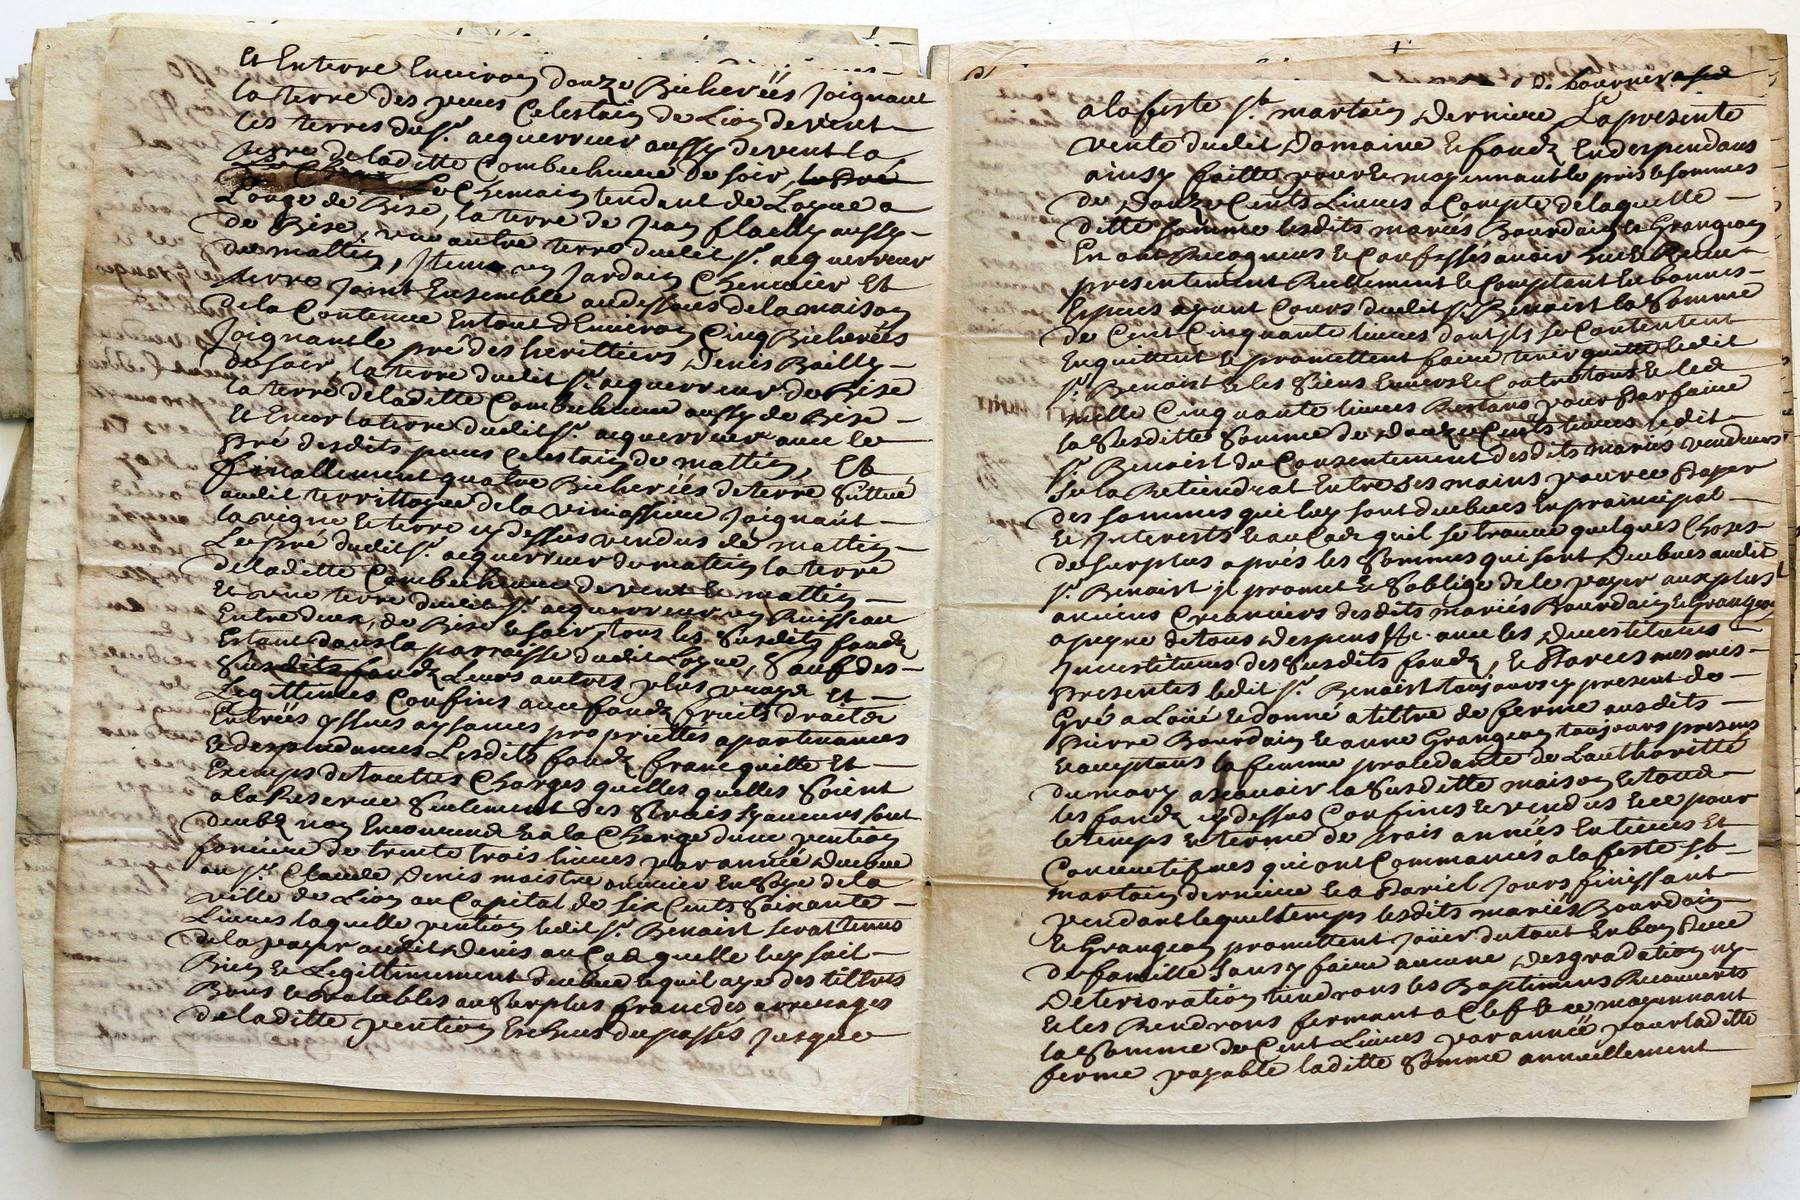 et Enterre Environ douze Bicherées joignant
la terre des peres Celestain de Lion de vent
les terres du Sr. acquerreur aussy de vent la
terre de laditte Combechieure de soir,
Le Chemin tendant de Loyue a
Longe de Bise, la terre de Jean flachy aussy
de Bise, une autre terre dudit Sr. acquerreur
du mattin, Jtem un Jardain Chenevier Et
terre joint Ensemble audessous de la maison
de la Contenue Entout d'Environ Cinq Bicherées
Joignant le pré des herittiers Denis Bailly
de soir, la terre dudit Sr. acquerreur de Bise
la terre de laditte Combechieure aussy de Bise
Et Encor la terre dudit Sr. acquerreur avec le
Pré desdits peres Celestain de mattin, Et
finallement quatre Bicherées de terre Sittué
audit territtoyre de la joignant
la vigne Et terre cy dessus vendus de mattin
Le pré dudit Sr. acquerreur du mattin la terre
de laditte Combechieure de vent Et mattin
Et une terre dudit Sr. acquerreur un Ruisseau
Entre deux, de Bise Et soir, tous les Susdits fondz
Estant dans la parroisse dudit Loyue, Sauf des
Susdits fondz Leurs autres plus vrays et
Legittimes Confins avec fondz fruits droits
Entrées yssues aysances proprietés apartenances
Et despendances Lesdits fondz franc quitte Et
Exemps de touttes Charges quelles quelles Soient
a la Reserve Seulement des servis sy aucuns sont
deubz non Encourus Et a la Charge dune pention
fonciere de trente trois livres par année Deubue
au Sr. Claude Denis maistre ouvrier En Soye de la
ville de Lion au Capital de six Cents Soixante
Livres laquelle pention ledit Sr. Benoist serat tenus
de la payer audit Denis au Cas quelle luy soit
Bien Et Legittimement deubue Et quil aye des tiltres
Bons Et valables au Surplus franc des arrerages
de laditte pention Escheus du passé jusque
a la feste St. martin Derniere La presente
vente dudit Domaine Et fondz En despendans
ainsy faitte pour Et moyennant le pris Et sommes
de Douze Cents Livres a Compte de laquelle
ditte somme lesdits mariés Bourdain Et Grangeon
En ont Recogneus Et Confessés avoir heu Et Receu
presentement Reellement Et Comptant En bonnes
Especes ayant Cours dudit Sr. Benoist la Somme
de Cent Cinquante livres dont jls se Contentent
Enquittent Et promettent faire tenir quitte ledit
Sr. Benoist Et les Siens Envers Et Contre tous Et les
mille Cinquante livres Restans pour Parfaire
la Susditte Somme de Douze Cents livres ledit
Sr. Benoist du Consentement desdits mariés vendeurs
se la Retiendrat Entre Ses mains pour ce Payer
des sommes qui luy sont deubues En praincipal
Et Jnterests Et au Cas quil se trouve quelques Choses
de surplus aprés les Sommes qui sont Deubues audit
Sr. Benoist jl promet Et Soblige de les payer aux plus
anciens Creanciers desdits mariés Bourdain Et Grangeon
a peyne de tous despens &c. avec les Devestitures
Jnvestitures des Susdits fondz, Et Par ces mesmes
Presentes ledit Sr. Benoist toujours cy present de
Gré a Loüé Et donné a tiltre de ferme ausdits
Pierre Bourdain Et anne Grangeon toujours presens
Et acceptans la femme procedante de Lauthoritté
du mary a scavoir la Susditte maison Et tous
les fondz cy dessus Confinés Et vendus Et ce pour
le temps Et terme de trois années Entieres Et
Consecutifves qui ont Commancés a la feste St.
martin derniere Et a Pareil Jours finissant
Pendant lequel temps lesdits mariés Bourdain
Et Grangeon promettent joüir du tout En bon Pere
de famille Sans y faire aucune Desgradation ny
Deterioration tiendrons les Baptimens Recouverts
Et les Rendrons fermant a Clef Et ce moyennant
la Somme de Cent Livres par année pour laditte
ferme payable laditte Somme annuellement